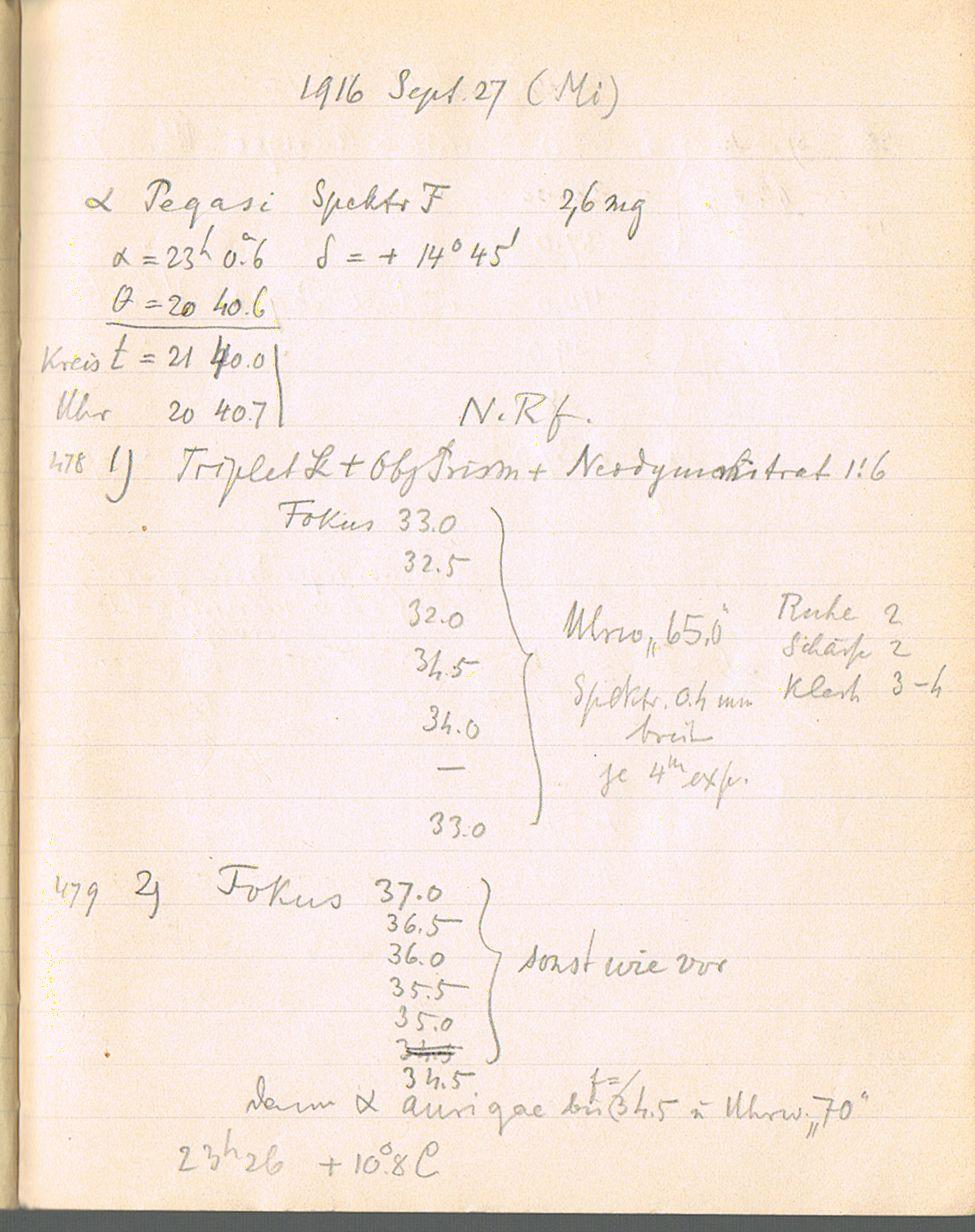 1916 Sept. 27 (Mi)
α Pegasi Spektr F 2,6 mg
α = 23h 0.6 δ = + 14° 45'
θ = 20 40.6
Kreis t = 21 40.0
Uhr 20 40.7
N. Rf.
478 1) Triplet + Obj Prism + Neodymnitrat 1:6
Fokus 33.0
32.5
32.0
34.5
34.0
—
33.0
Uhrw „65,0"
Spektr. 0.4 mm
breit
je 4m exp.
Ruhe 2
Schärfe 2
Klarh 3-4
479 2) Fokus 37.0
36.5
36.0
35.5
35.0
34.5
34.5
sonst wie vor
dann α aurigae bei f=34.5 u Uhrw. „70"
23h 26 + 10°.8 C